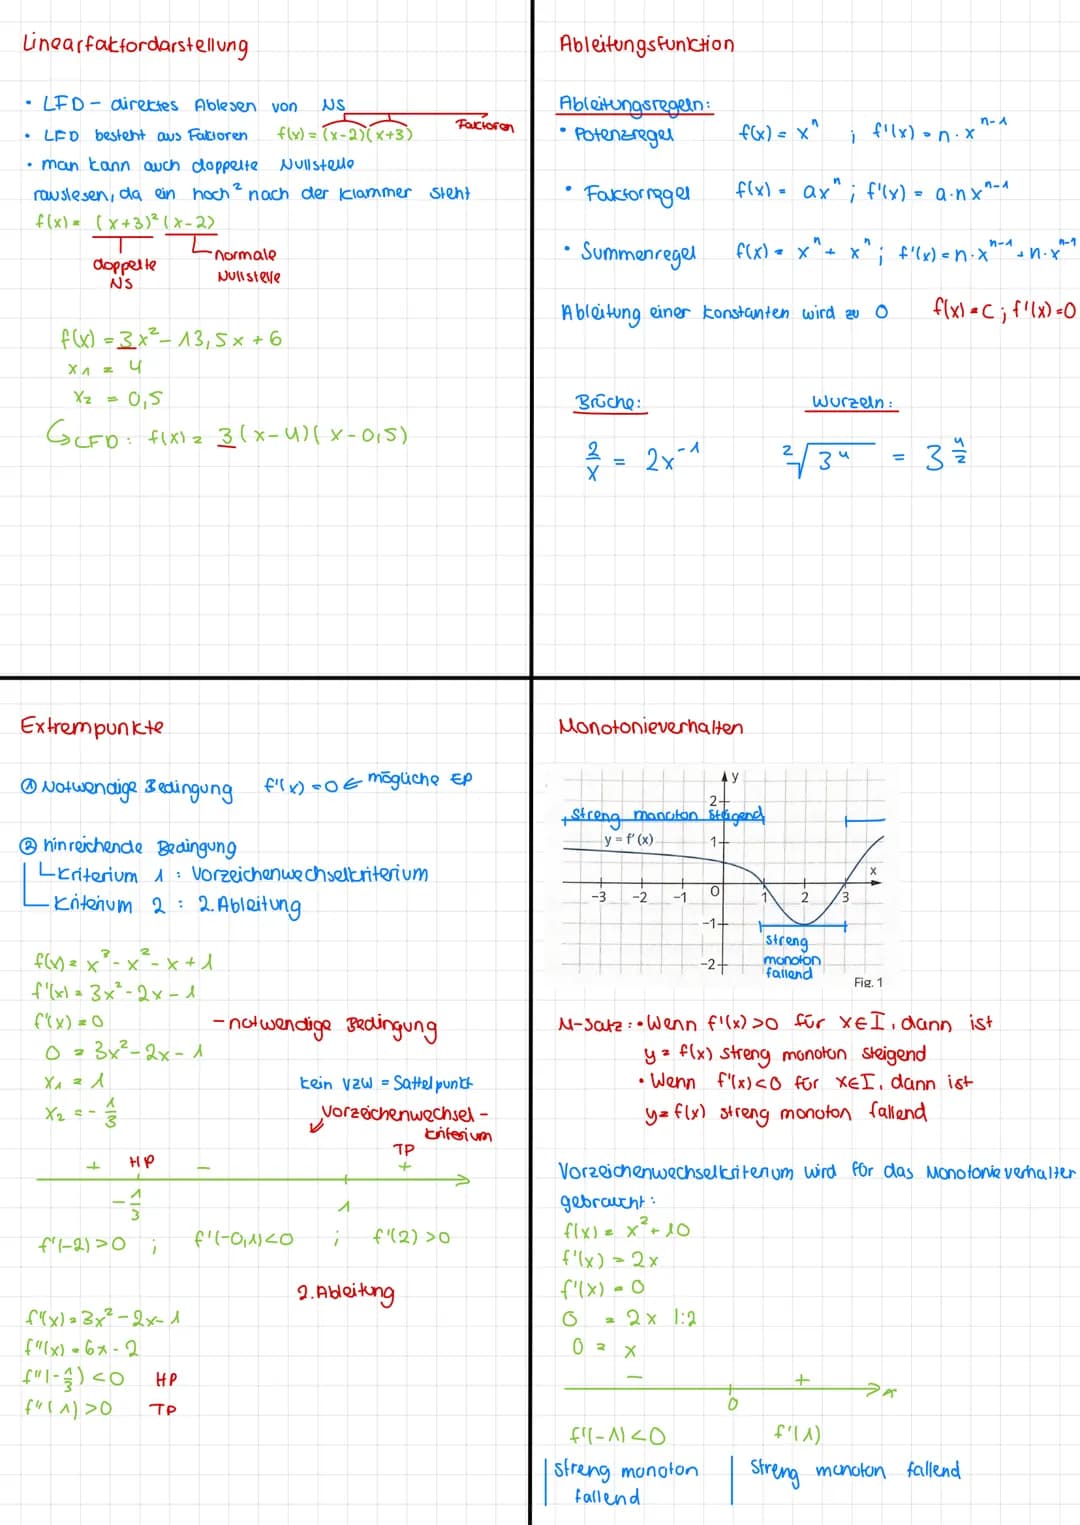 Linearfaktordarstellung
• LFD - direktes Ablesen von NS
• LFD besteht aus Faktoren f(x) = (x-2)(x+3) Faktoren
• man kann auch doppelte Nullstelle
rauslesen, da ein hoch² nach der Klammer steht
f(x) = (x+3)² (x-2)
doppelte NS
normale Nullstelle
f(x) = 3x² - 13,5x + 6
x₁ = 4
x₂ = 0,5
↳ LFD: f(x) = 3(x-4)(x-0,5)
Ableitungsfunktion
Ableitungsregeln:
• Potenzregel f(x) = xⁿ ; f'(x) = n · xⁿ⁻¹
• Faktorregel f(x) = axⁿ ; f'(x) = a·nxⁿ⁻¹
• Summenregel f(x) = xⁿ + xⁿ ; f'(x) = n·xⁿ⁻¹ + n·xⁿ⁻¹
Ableitung einer Konstanten wird zu 0 f(x) = C ; f'(x) = 0
Brüche: Wurzeln:
2/x = 2x⁻¹ ²√3⁴ = 3^(4/2)
Extrempunkte
① Notwendige Bedingung f'(x) = 0 ← mögliche EP
② hinreichende Bedingung
Kriterium 1 : Vorzeichenwechselkriterium
Kriterium 2 : 2. Ableitung
f(x) = x³ - x² - x + 1
f'(x) = 3x² - 2x - 1
f'(x) = 0 - notwendige Bedingung
0 = 3x² - 2x - 1
x₁ = 1 kein VZW = Sattelpunkt
x₂ = - 1/3 Vorzeichenwechsel-
kriterium
+ HP - TP +
- 1/3 1
f'(-2) > 0 ; f'(-0,1) < 0 ; f'(2) > 0
2. Ableitung
f'(x) = 3x² - 2x - 1
f''(x) = 6x - 2
f''(-1/3) < 0 HP
f''(1) > 0 TP
Monotonieverhalten
y
2
streng monoton steigend
y = f'(x) 1
x
-3 -2 -1 0 1 2 3
-1
streng
monoton
fallend
-2
Fig. 1
M-Satz: • Wenn f'(x) > 0 für x∈I, dann ist
y = f(x) streng monoton steigend
• Wenn f'(x) < 0 für x∈I, dann ist
y = f(x) streng monoton fallend
Vorzeichenwechselkriterium wird für das Monotonieverhalten
gebraucht:
f(x) = x² + 10
f'(x) = 2x
f'(x) = 0
0 = 2x |:2
0 = x
- + x
0
f'(-1) < 0 f'(1)
streng monoton
fallend
streng monoton fallend